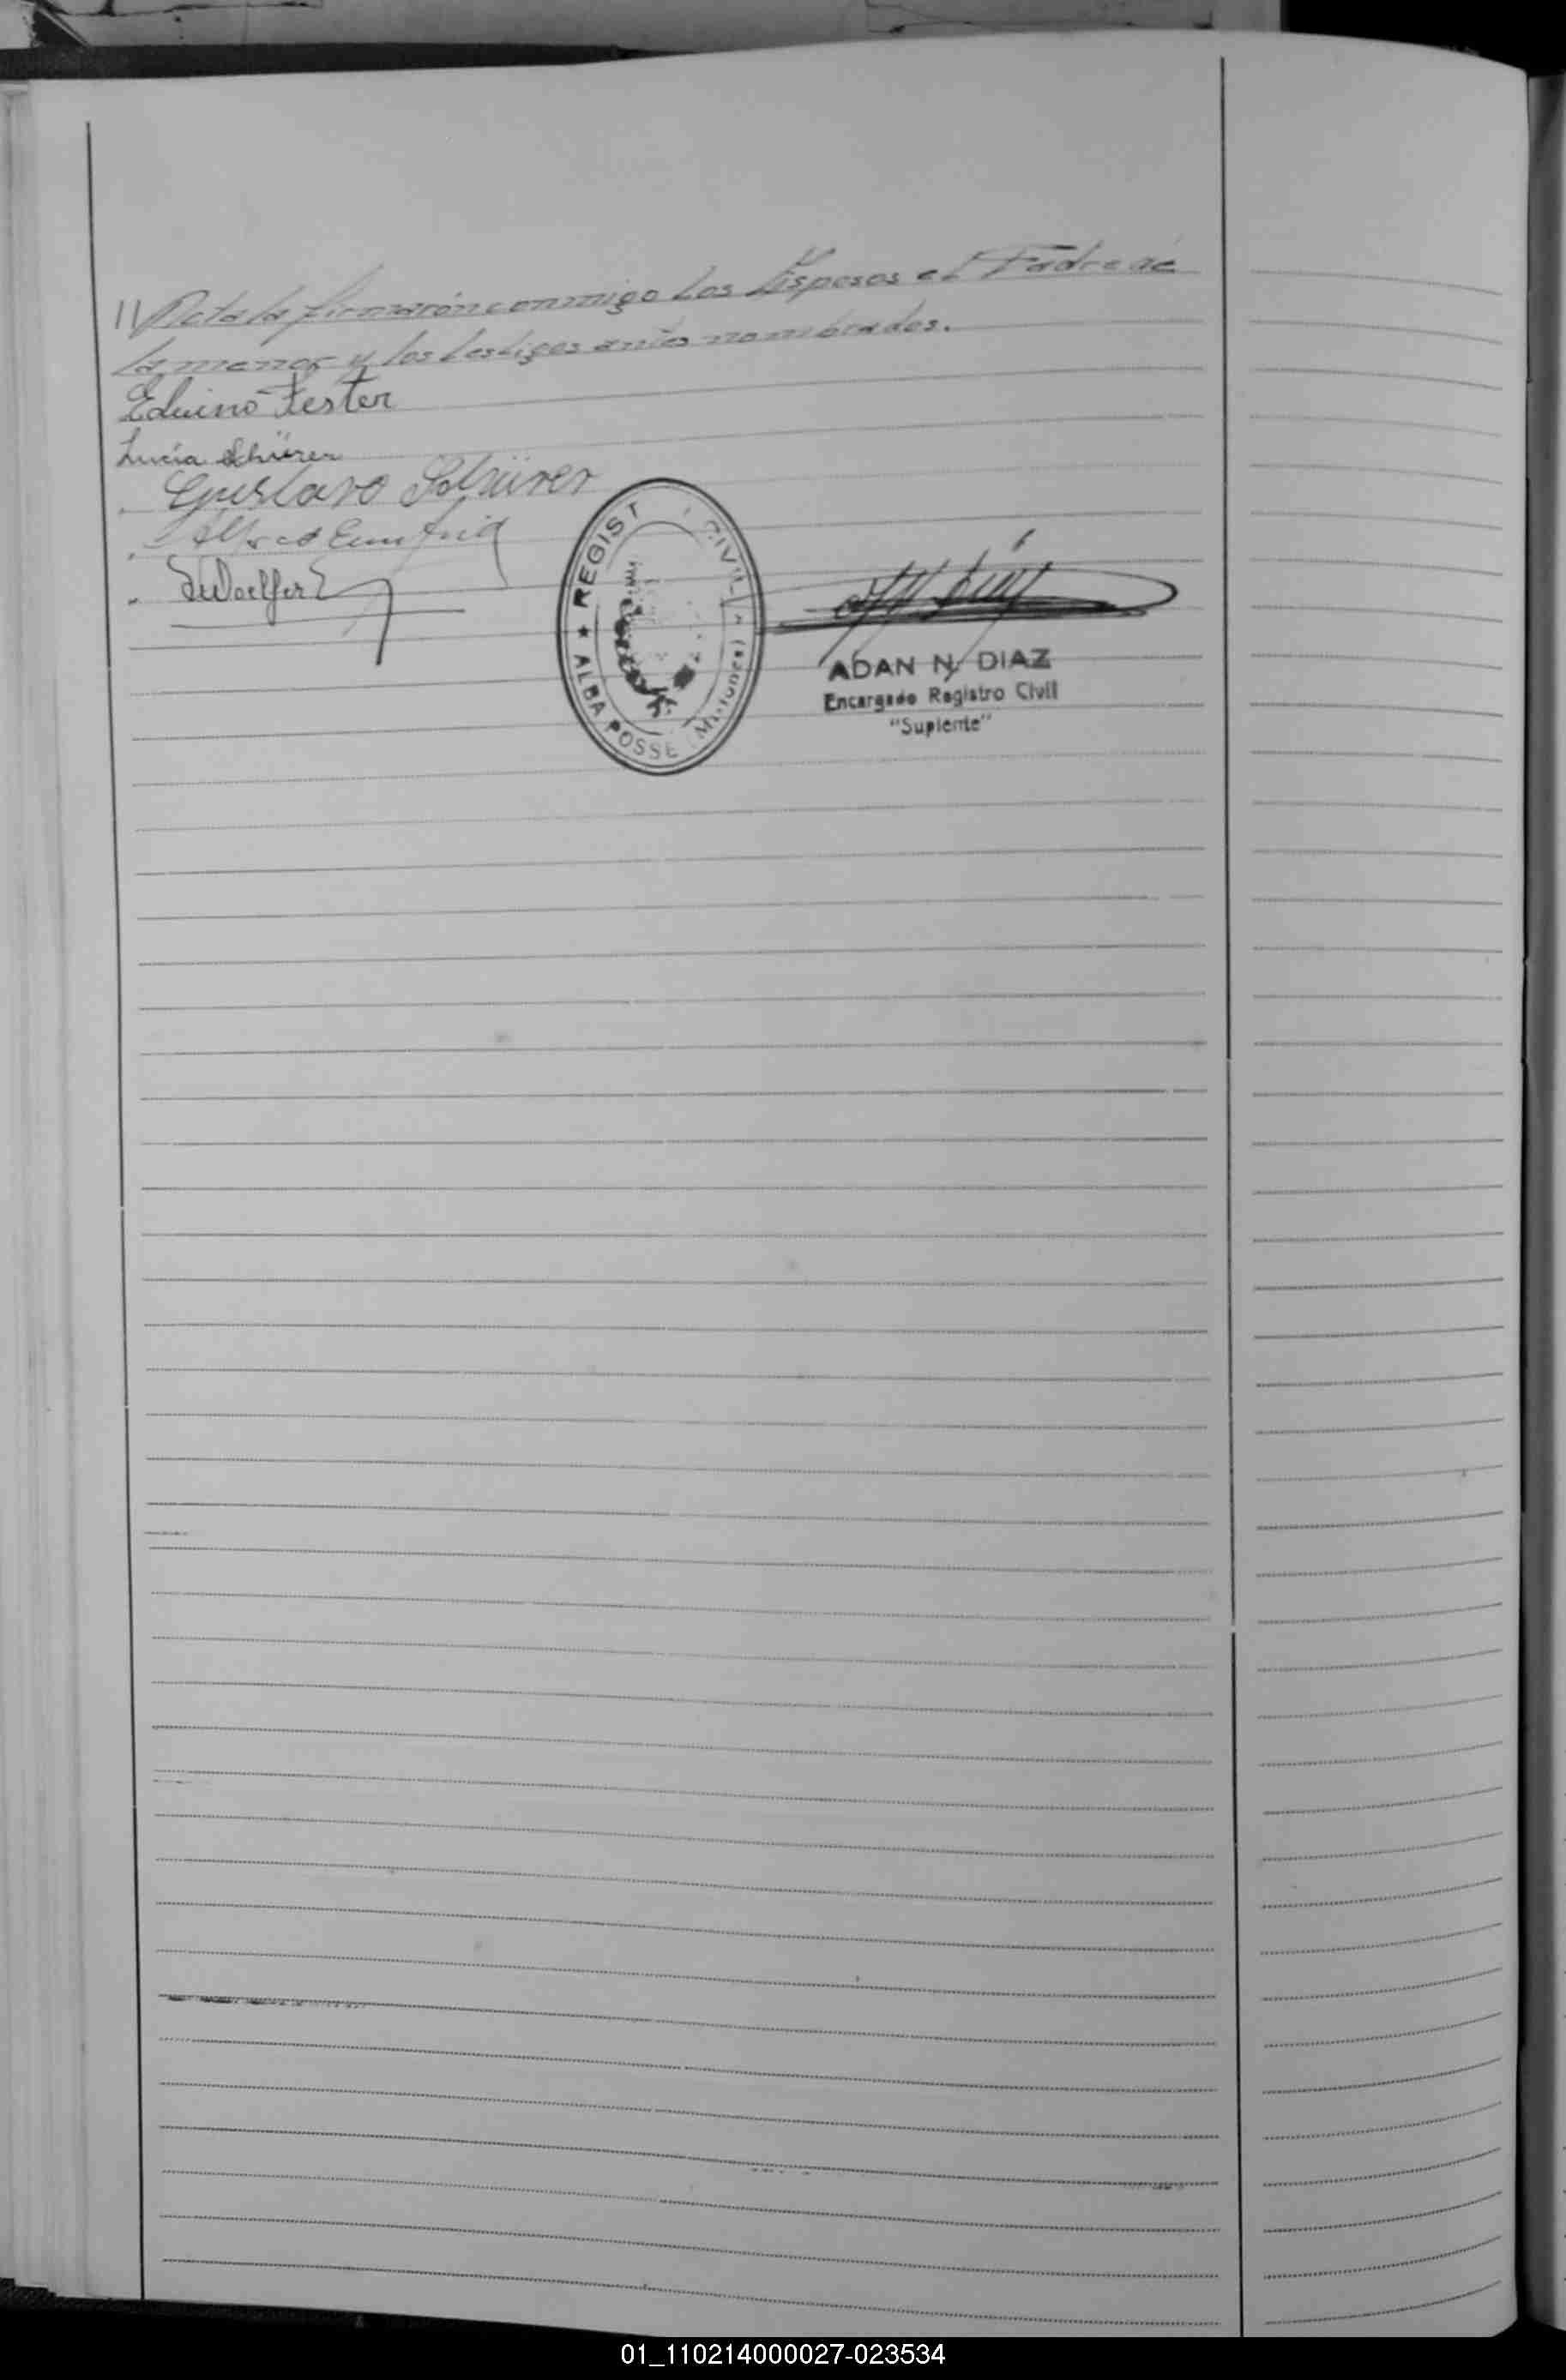 // Acta la firmarón conmigo Los Esposos el Padre de
la menor y los testigos antes nombrados.
Edwino Fester
Lucía Schürer
Gustavo Schürer
Alfred
REGIST CIVIL
★ ALBA POSSE (Misiones)
ADAN N. DIAZ
Encargado Registro Civil
"Suplente"
01_110214000027-023534